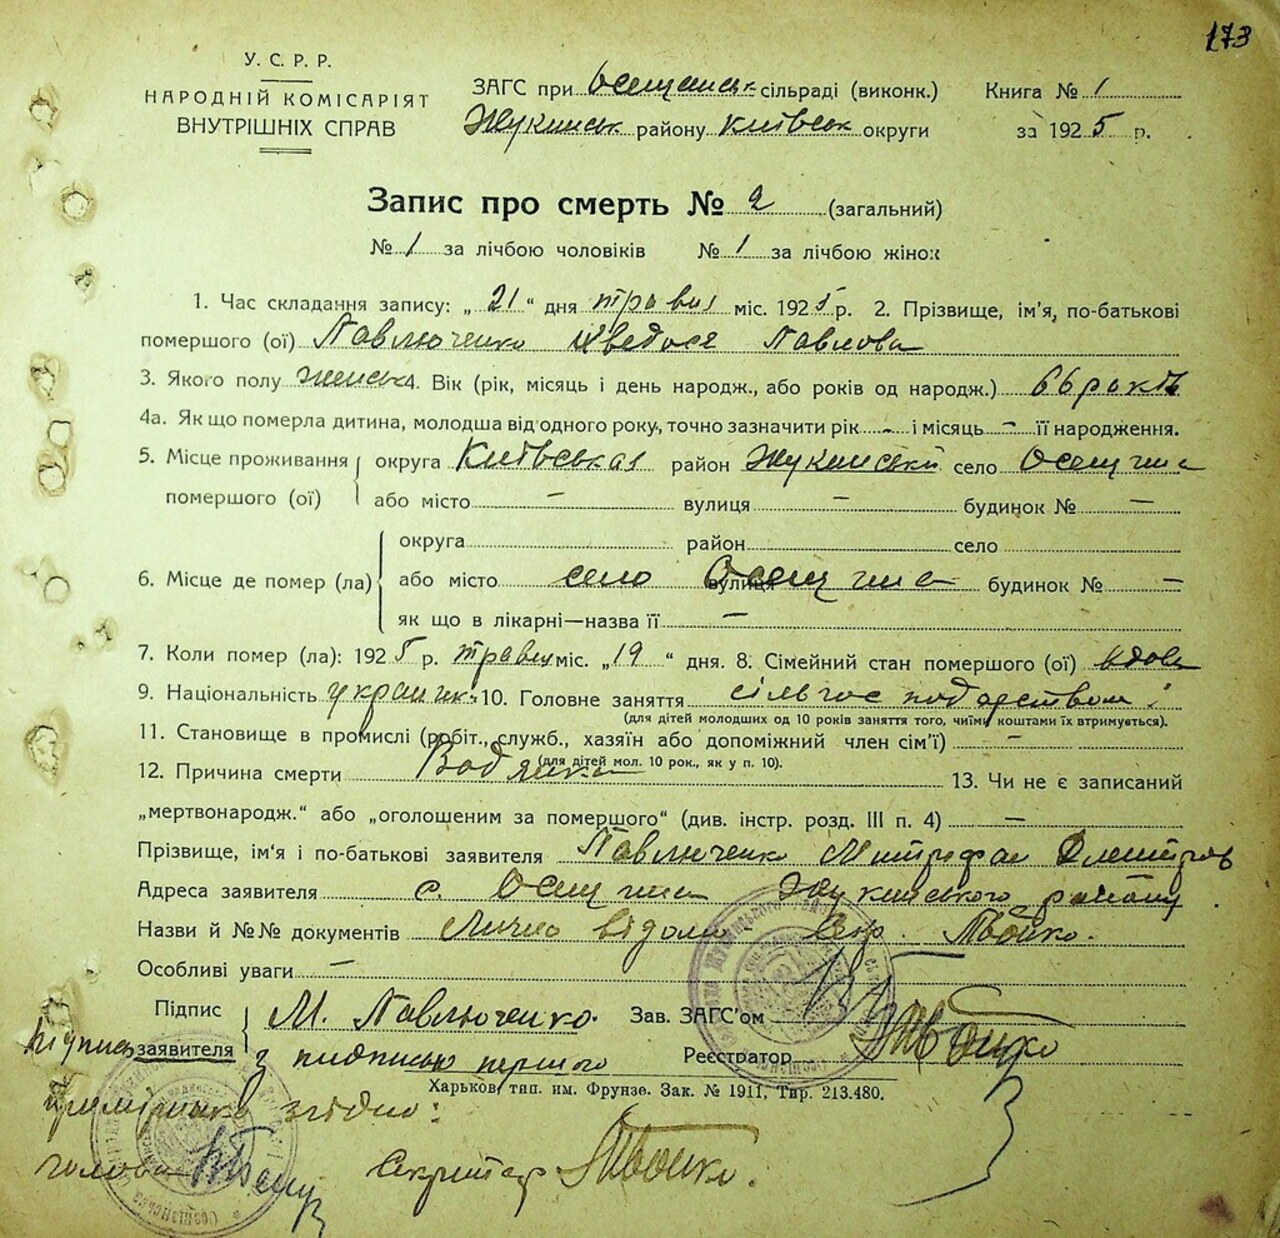 173
У. С. Р. Р.
НАРОДНІЙ КОМІСАРІЯТ
ВНУТРІШНІХ СПРАВ
ЗАГС при Осещанськ сільраді (виконк.)
Жукинськ району Київськ округи
Книга № 1
за 1925 р.
Запис про смерть № 2 (загальний)
№ 1 за лічбою чоловіків № 1 за лічбою жінок
1. Час складання запису: „21“ дня травня міс. 1925 р. 2. Прізвище, ім'я, по-батькові
помершого (ої) Павлюченко Хведося Павлова
3. Якого полу Женськ 4. Вік (рік, місяць і день народж., або років од народж.) 66 років
4а. Як що померла дитина, молодша від одного року, точно зазначити рік — і місяць — її народження.
5. Місце проживання помершого (ої) округа Київська район Жукинський село Осещина
або місто — вулиця — будинок № —
6. Місце де помер (ла) округа район село
або місто село вулиця Осещина будинок № —
як що в лікарні—назва її —
7. Коли помер (ла): 1925 р. травня міс. „19“ дня. 8. Сімейний стан помершого (ої) вдова
9. Національність українк. 10. Головне заняття сільгос подарством
(для дітей молодших од 10 років заняття того, чиїми коштами їх втримується).
11. Становище в промислі (робіт., служб., хазяїн або допоміжний член сім'ї) —
(для дітей мол. 10 рок., як у п. 10).
12. Причина смерти Водянка 13. Чи не є записаний
„мертвонародж.“ або „оголошеним за помершого“ (див. інстр. розд. III п. 4) —
Прізвище, ім'я і по-батькові заявителя Павлюченко Митрофан Дмитров
Адреса заявителя с. Осещина Жукинського району
Назви й №№ документів Лично відомо Секр. Твойко.
Особливі уваги —
Підпис заявителя М. Павлюченко. Зав. ЗАГС'ом
з пидписью першого Реєстратор Твойко
Харьков, тип. им. Фрунзе. Зак. № 1911, Тир. 213.480.
Підпись
згідно:
голова Секритар Твойко.